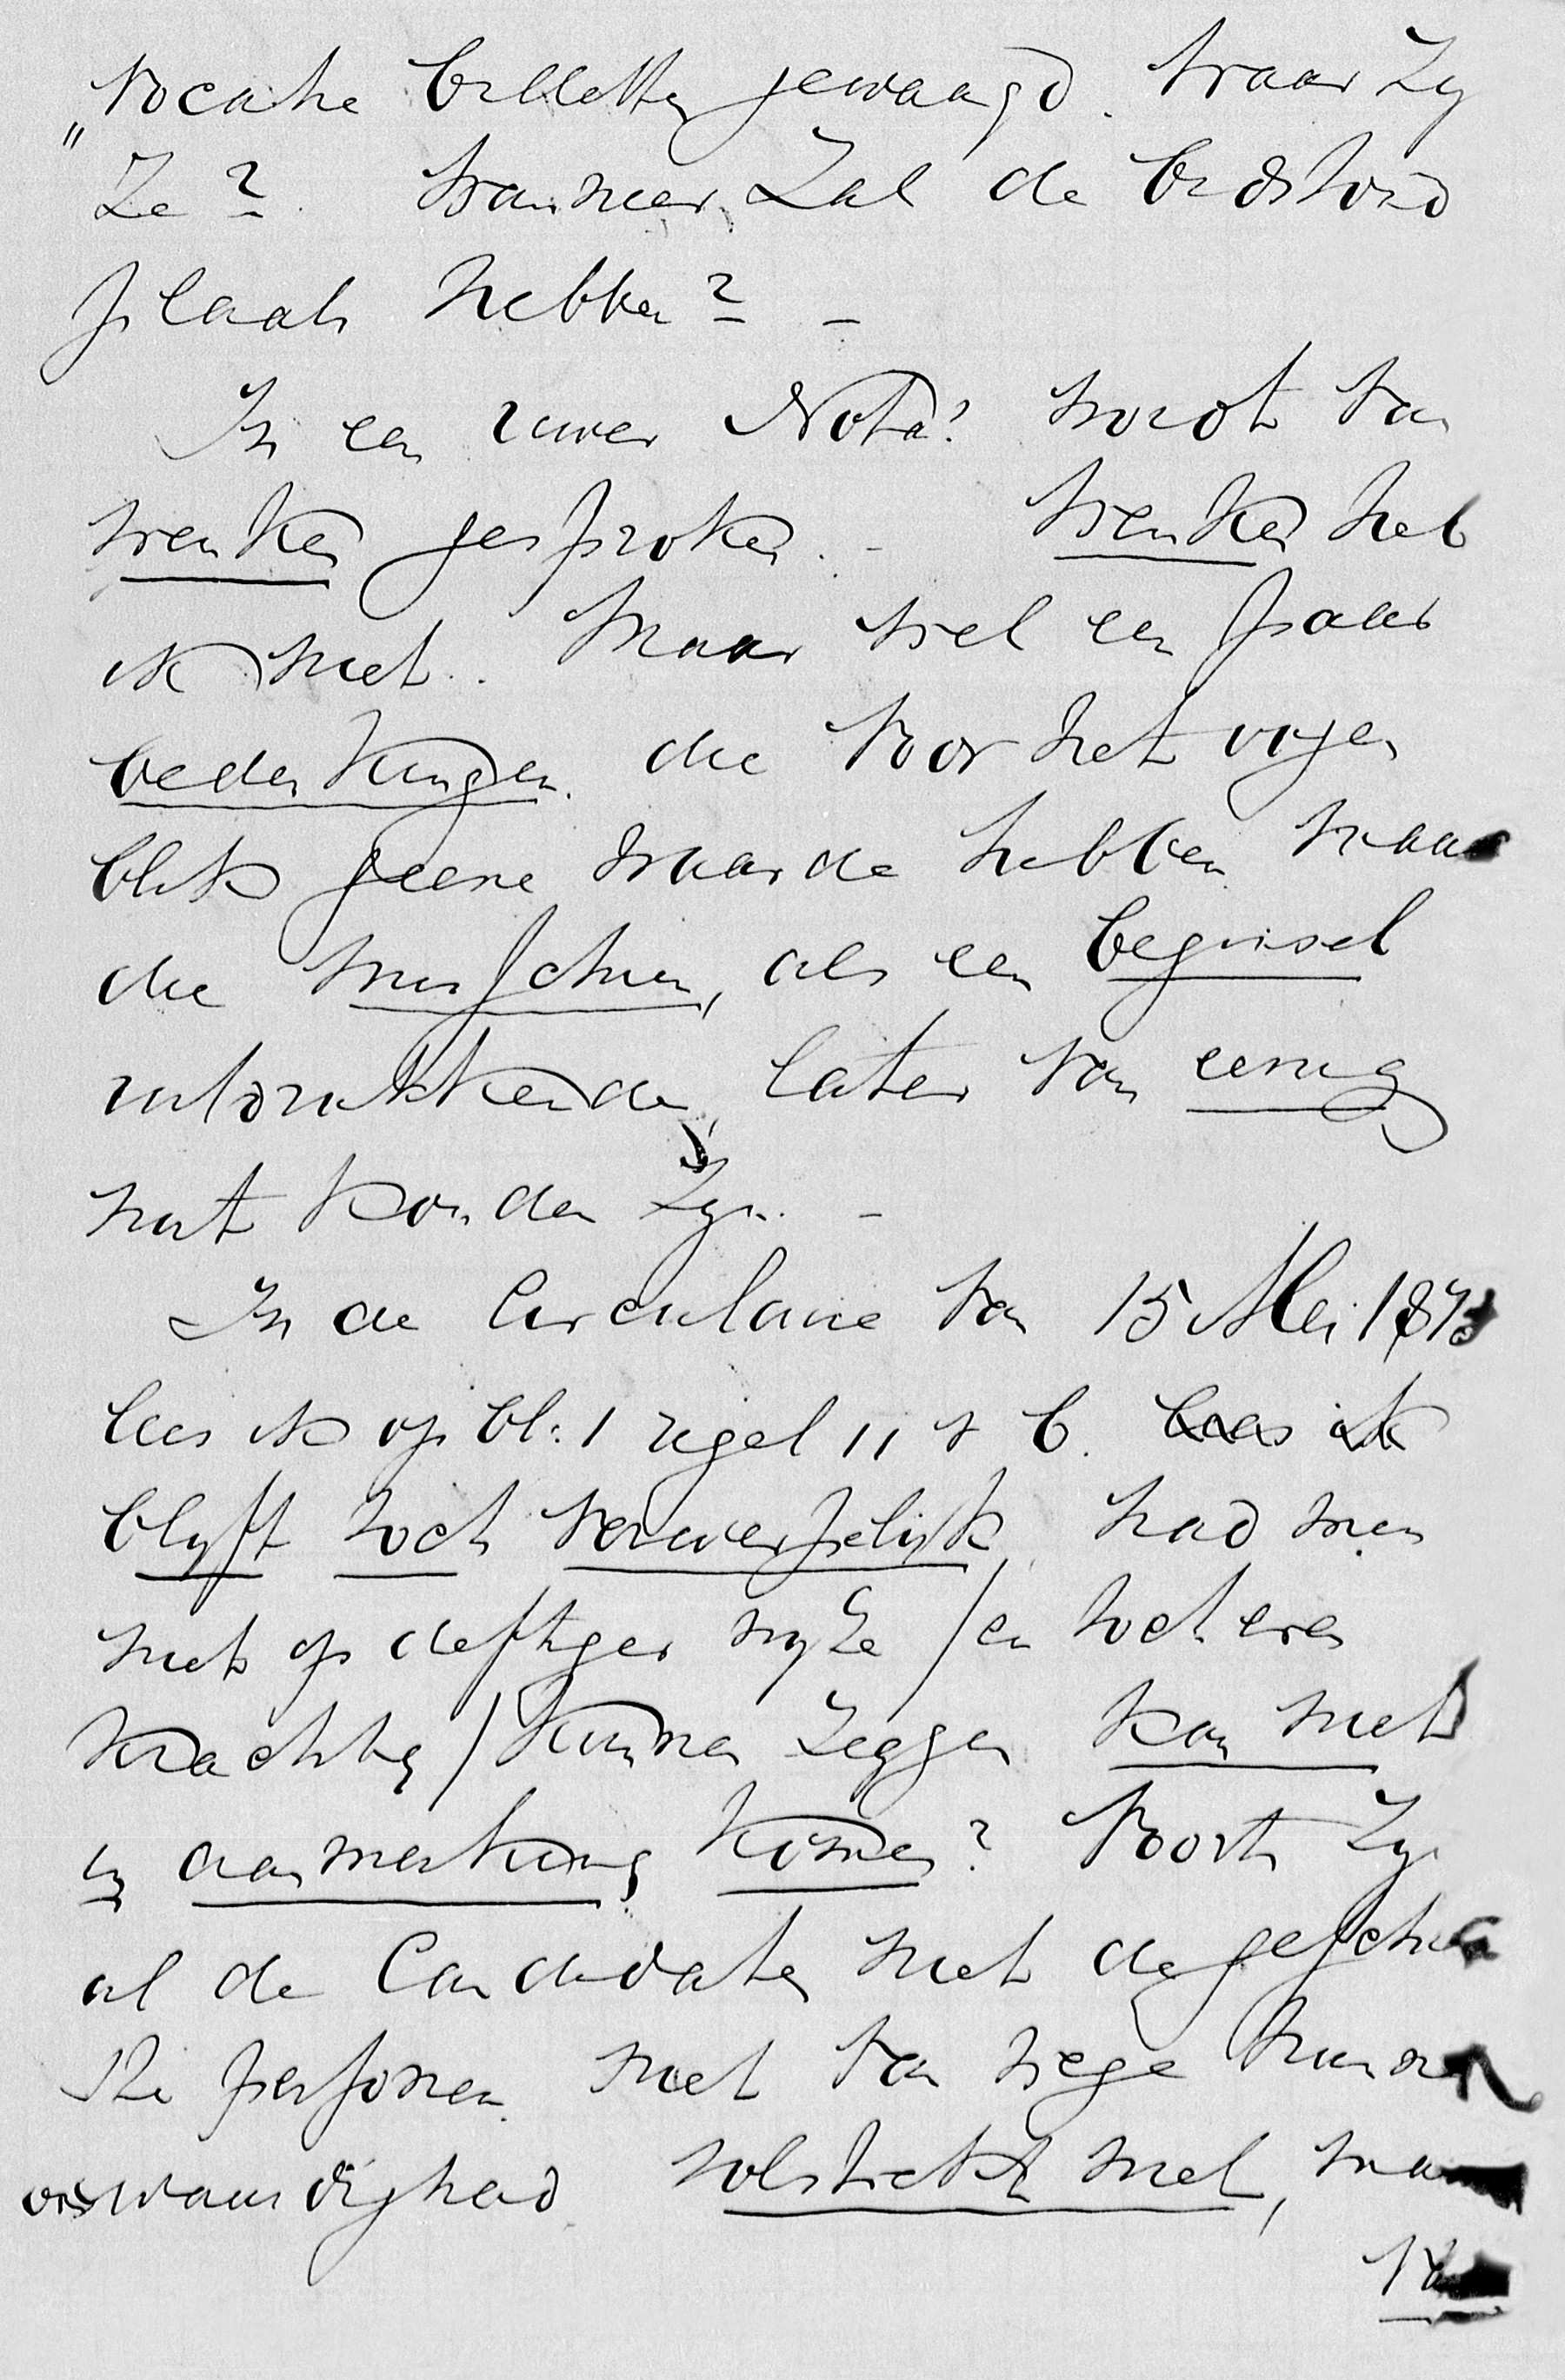 "vocatie billetten gewaagd. Waar zyn
ze? Wanneer zal de bedstond
plaats hebben? –
In een uwer Nota's wordt van
wenken gesproken. – Wenken heb
ik niet. Maar wel een paar
bedenkingen die voor het oogen
blik geene waarde hebben maar
die misschien, als een beginsel
uitdrukkende, later van eenig
nut konden zyn. –
In de Circulaire van 15 Mei 1873
lees ik op bl: 1 regel 11 v b. lees ik
blyft toch verwerpelijk, had men
niet op deftiger wyze / en toch even
krachtig / kunnen zeggen kan niet
in aanmerking komen? Voorts zyn
al de Candidaten niet de geschik
ste personen niet van wege hunne
onwaardigheid volstrekt niet, maar